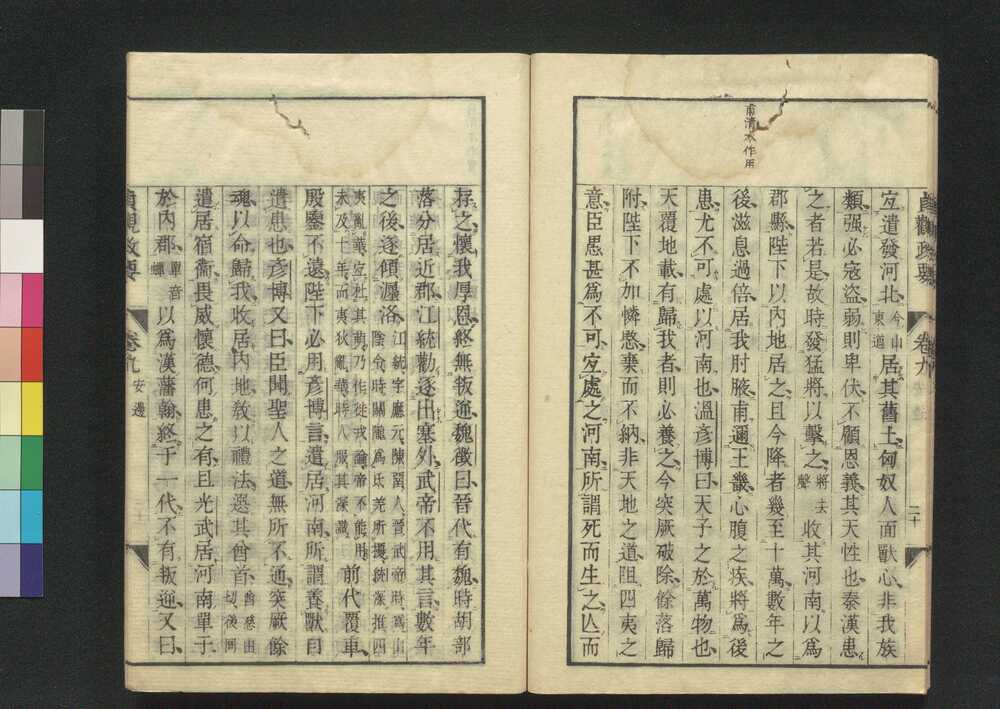 貞觀政要 卷九 二十
宜遣發河北今山東道居其舊土匈奴人面獸心非我族
類强必寇盜弱則卑伏不顧恩義其天性也秦漢患
之者若是故時發猛將以擊之將去聲收其河南以爲
郡縣陛下以內地居之且今降者幾至十萬數年之
後滋息過倍居我肘腋甫邇王畿心腹之疾將爲後
患尤不可處以河南也溫彥博曰天子之於萬物也
天覆地載有歸我者則必養之今突厥破除餘落歸
附陛下不加憐愍棄而不納非天地之道阻四夷之
意臣愚甚爲不可宜處之河南所謂死而生之亾而
甫淸本作用
存之懷我厚恩終無叛逆魏徵曰晉代有魏時胡部
落分居近郡江統勸逐出塞外武帝不用其言數年
之後遂傾瀍洛江統字應元陳留人晉武帝時爲山陰令時關隴爲氐羌所擾統深推四
夷亂華宜杜其萌乃作徙戎論帝不能用未及十年而夷狄亂華時人服其深識前代覆車
殷鑒不遠陛下必用彥博言遣居河南所謂養獸自
遺患也彥博又曰臣聞聖人之道無所不通突厥餘
魂以命歸我收居內地敎以禮法選其酋首酋慈由切後同
遣居宿衞畏威懷德何患之有且光武居河南單于
於內郡單音蟬以爲漢藩翰終于一代不有叛逆又曰
貞觀政要 卷九 安邊